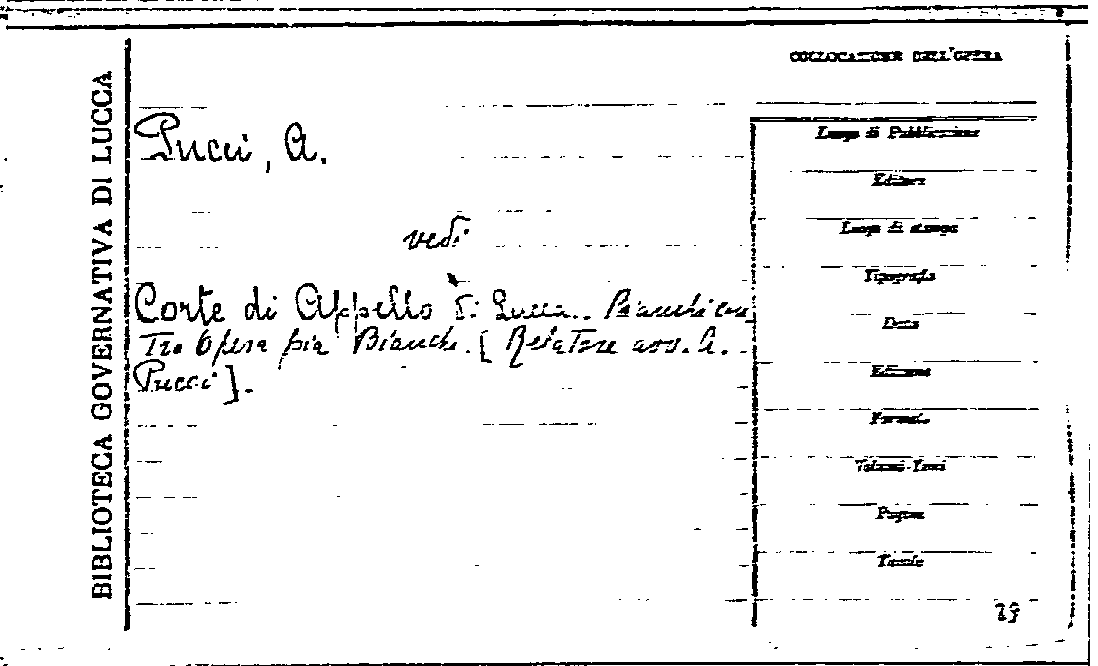 BIBLIOTECA GOVERNATIVA DI LUCCA
COLLOCAZIONE DELL'OPERA
Pucci, A.
vedi
Corte di Appello di Lucca.. Bianchi con
Tro Opera pia Bianchi. [Relatore avv. A.
Pucci].
Luogo di Pubblicazione
Editore
Luogo di stampa
Tipografia
Data
Edizione
Formato
Volumi-Tomi
Pagine
Tavole